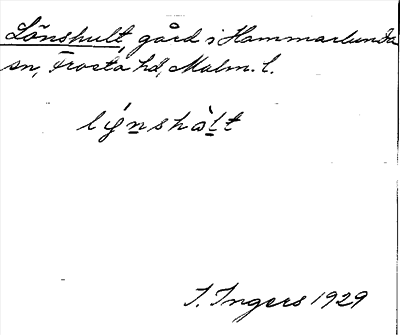 Lönshult, gård i Hammarlunda
sn, Frosta hd, Malm. l.
lýnshàlt
I. Ingers 1929